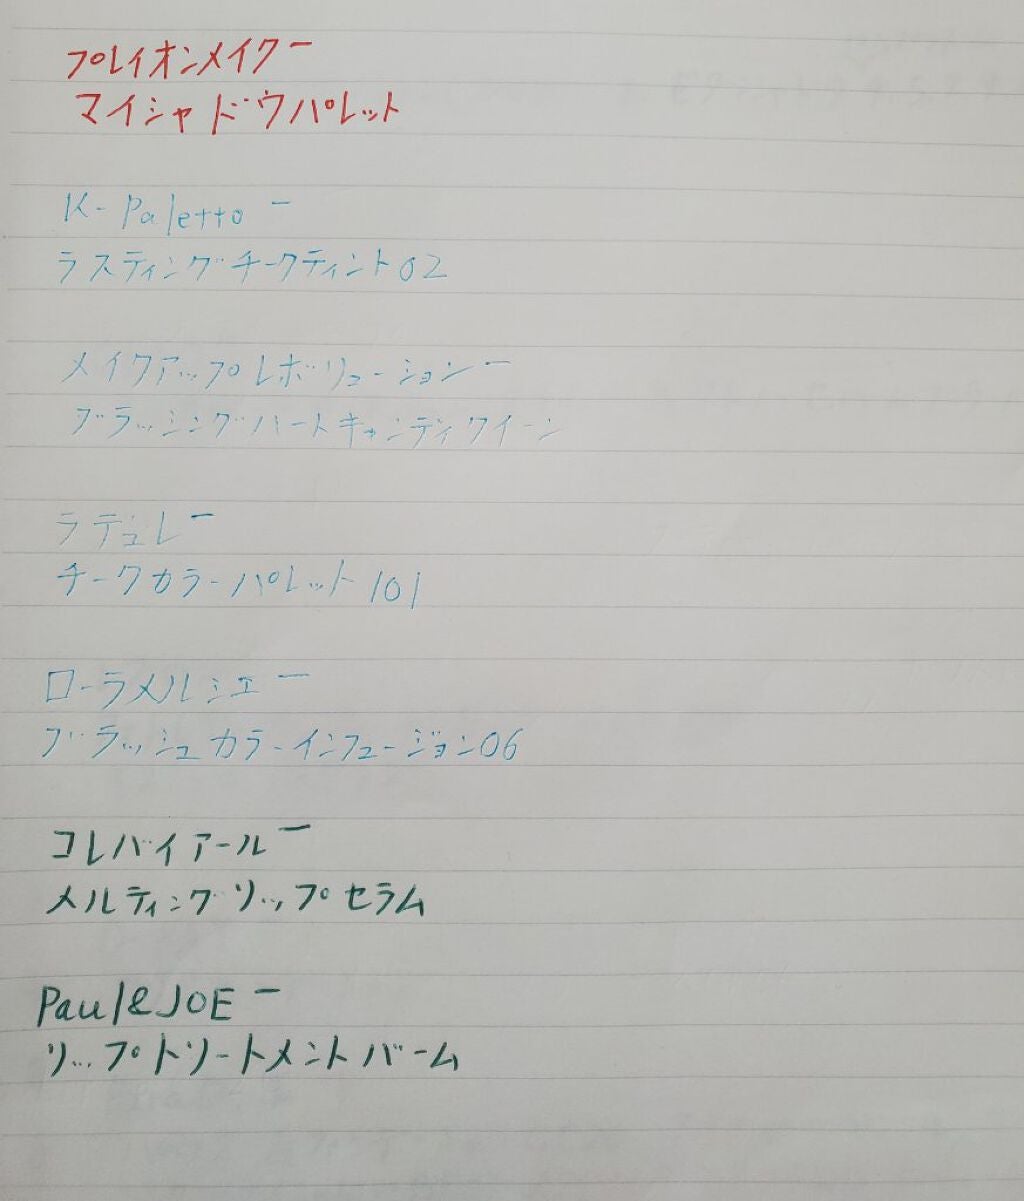 プレイオンメイクー
マイシャドウパレット
K-Palettoー
ラスティングチークティント02
メイクアップレボリューションー
ブラッシングハートキャンディクイーン
ラデュレー
チークカラーパレット101
ローラメルシエー
ブラッシュカラーインフュージョン06
コレバイアールー
メルティングリップセラム
Paul&JOEー
リップトリートメントバーム